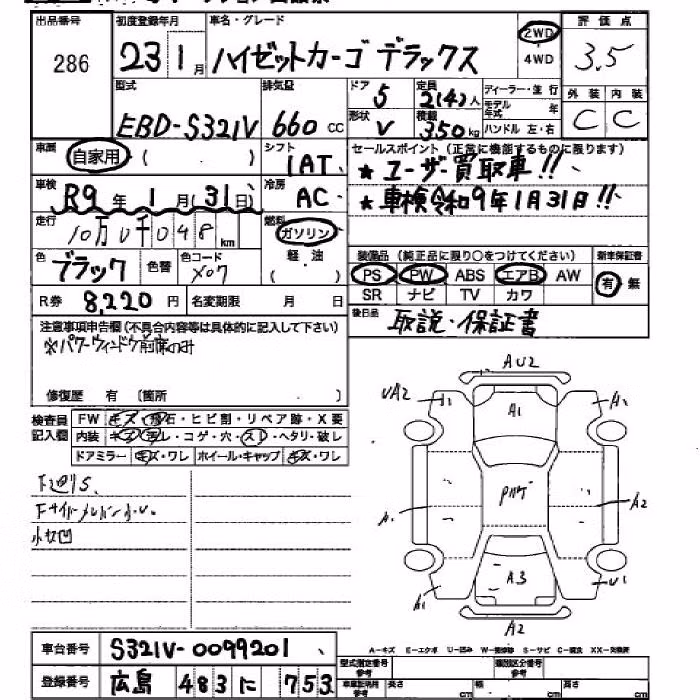 出品番号 286
初度登録年月 23 1月
車名・グレード ハイゼットカーゴ デラックス
2WD
4WD
評価点 3.5
型式 EBD-S321V
排気量 660 cc
ドア 5
定員 2(4)人
形状 V
積載 350kg
ディーラー・並行
モデル年式 年
ハンドル 左・右
外装 C
内装 C
車歴 自家用 ( )
シフト 1AT
セールスポイント (正常に機能するものに限ります)
★ ユーザー買取車!!
★ 車検令和9年1月31日!!
車検 R9年 1月(31日)
冷房 AC
走行 10万0千048km
燃料 ガソリン
軽・油
( )
色 ブラック
色替
色コード X07
装備品 (純正品に限り○をつけてください)
新車保証書
PS PW ABS エアB AW
有・無
SR ナビ TV カワ
R券 8,220円
名変期限 月 日
後日品 取説・保証書
注意事項申告欄(不具合内容等は具体的に記入して下さい)
※パワーウィンドウ前席のみ
修復歴 有 (箇所 )
検査員記入欄
FW キズ・飛石・ヒビ割・リペア跡・X要
内装 キズ・汚レ・コゲ・穴・スレ・ヘタリ・破レ
ドアミラー キズ・ワレ
ホイール・キャップ キズ・ワレ
下廻りS、
小キズ凹
AU2
UA2
A1
A1
A1
A
A2
A3
A1
U1
A2
A-キズ E-エクボ U-凹み W-補修跡 S-サビ C-腐食 XX-交換済
車台番号 S321V-0099201
登録番号 広島 483 に 753
型式指定番号参考
類別区分番号参考
車庫証明用参考
長さ cm
幅 cm
高さ cm